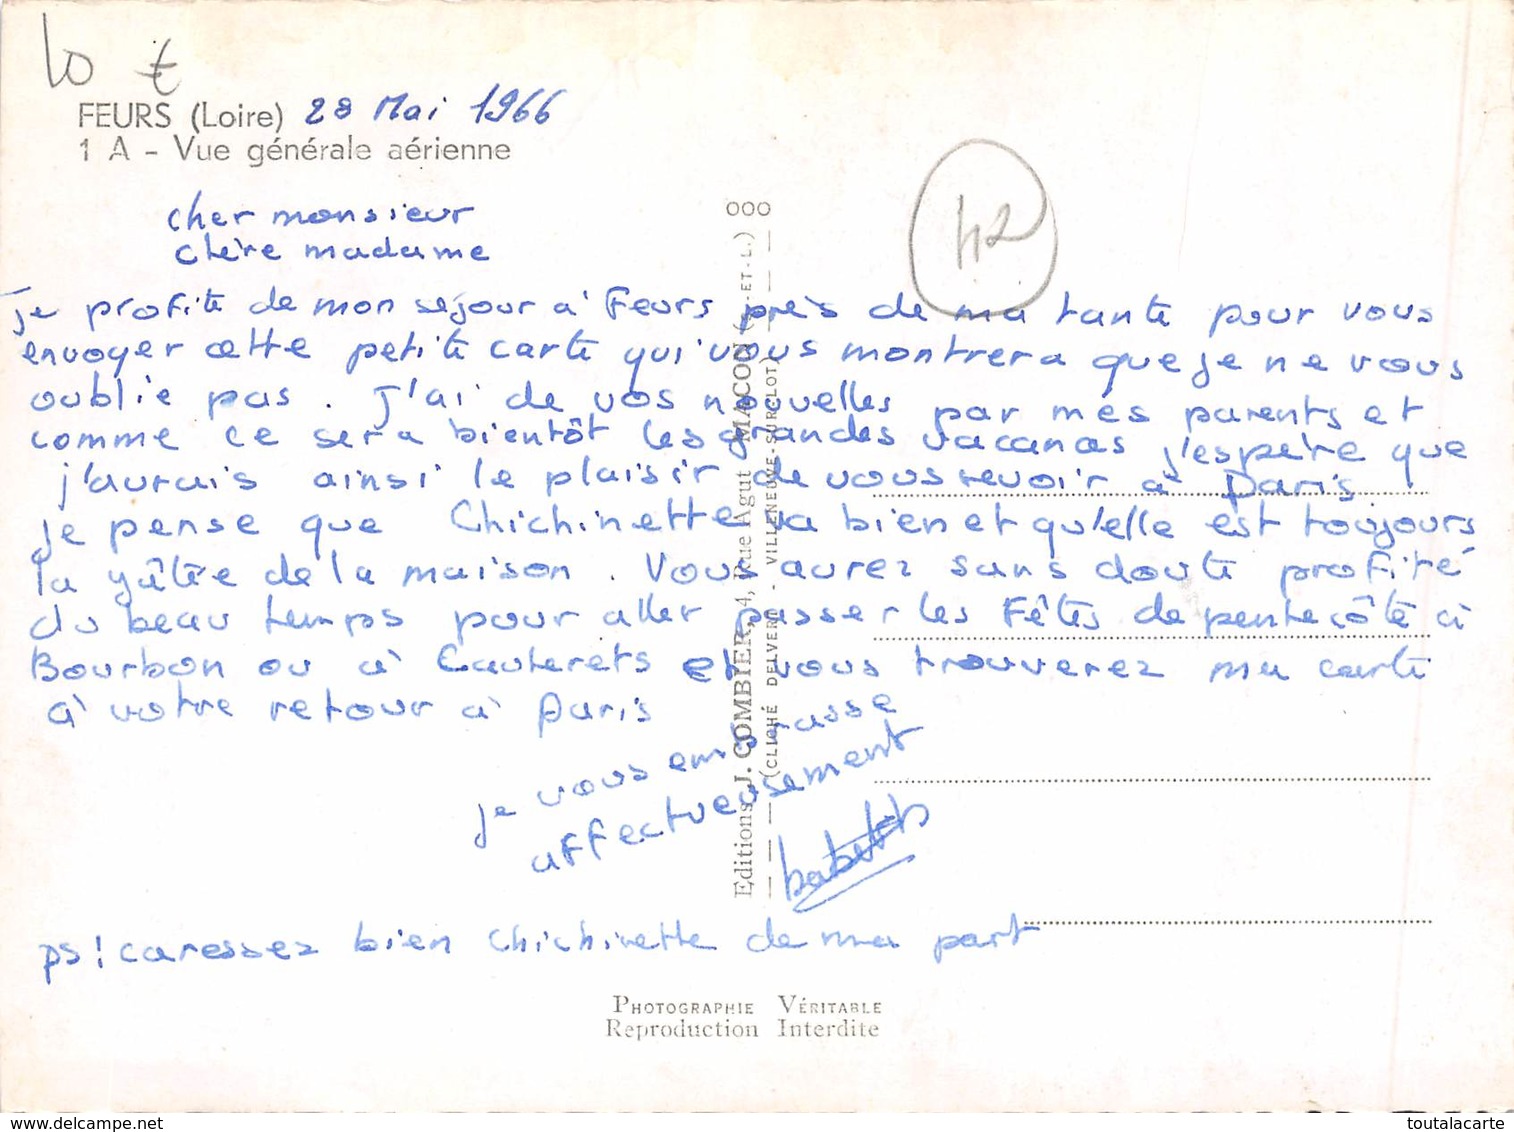 10 €
FEURS (Loire) 28 Mai 1966
1 A - Vue générale aérienne
42
cher monsieur
chère madame
je profite de mon séjour à Feurs près de ma tante pour vous
envoyer cette petite carte qui vous montrera que je ne vous
oublie pas. J'ai de vos nouvelles par mes parents et
comme ce sera bientôt les grandes vacances j'espère que
j'aurais ainsi le plaisir de vous revoir à Paris
je pense que Chichinette va bien et qu'elle est toujours
la gâtée de la maison. Vous aurez sans doute profité
du beau temps pour aller passer les Fêtes de pentecôte à
Bourbon ou à Cauterets et vous trouverez ma carte
à votre retour à Paris
je vous embrasse
affectueusement
ps! caressez bien chichinette de ma part
000
Editions J. COMBIER, 4, Rue Agut MACON (S.-ET-L.)
(CLICHÉ DELVERT - VILLENEUVE-SUR-LOT)
PHOTOGRAPHIE VÉRITABLE
Reproduction Interdite
www.delcampe.net
toutalacarte